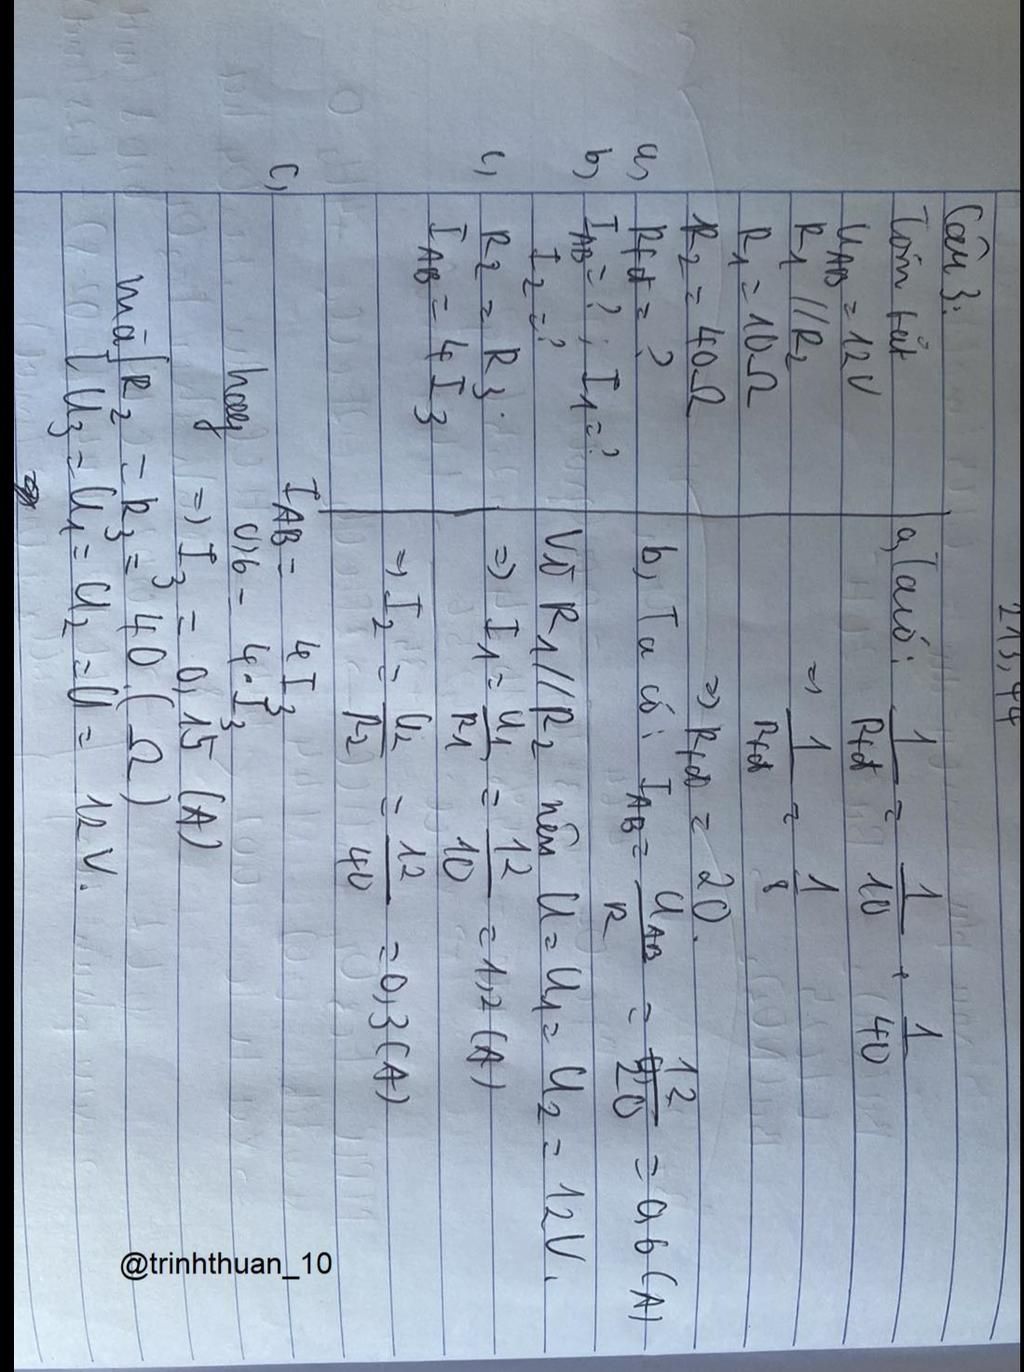 213,44
Câu 3:
Tóm tắt
U_AB = 12V
R_1 // R_2
R_1 = 10Ω
R_2 = 40Ω
a, R_tđ = ?
b, I_AB = ? ; I_1 = ?
I_2 = ?
c, R_2 = R_3.
I_AB = 4I_3
a, Ta có: 1/R_tđ = 1/10 + 1/40
=> 1/R_tđ = 1/8
=> R_tđ = 20.
b, Ta có: I_AB = U_AB/R = 12/20 = 0,6 (A)
Vì R_1 // R_2 nên U = U_1 = U_2 = 12V.
=> I_1 = U_1/R_1 = 12/10 = 1,2 (A)
=> I_2 = U_2/R_2 = 12/40 = 0,3 (A)
c, I_AB = 4I_3
hay 0,6 = 4.I_3
=> I_3 = 0,15 (A)
mà { R_2 = R_3 = 40 (Ω)
U_3 = U_1 = U_2 = U = 12V.
@trinhthuan_10